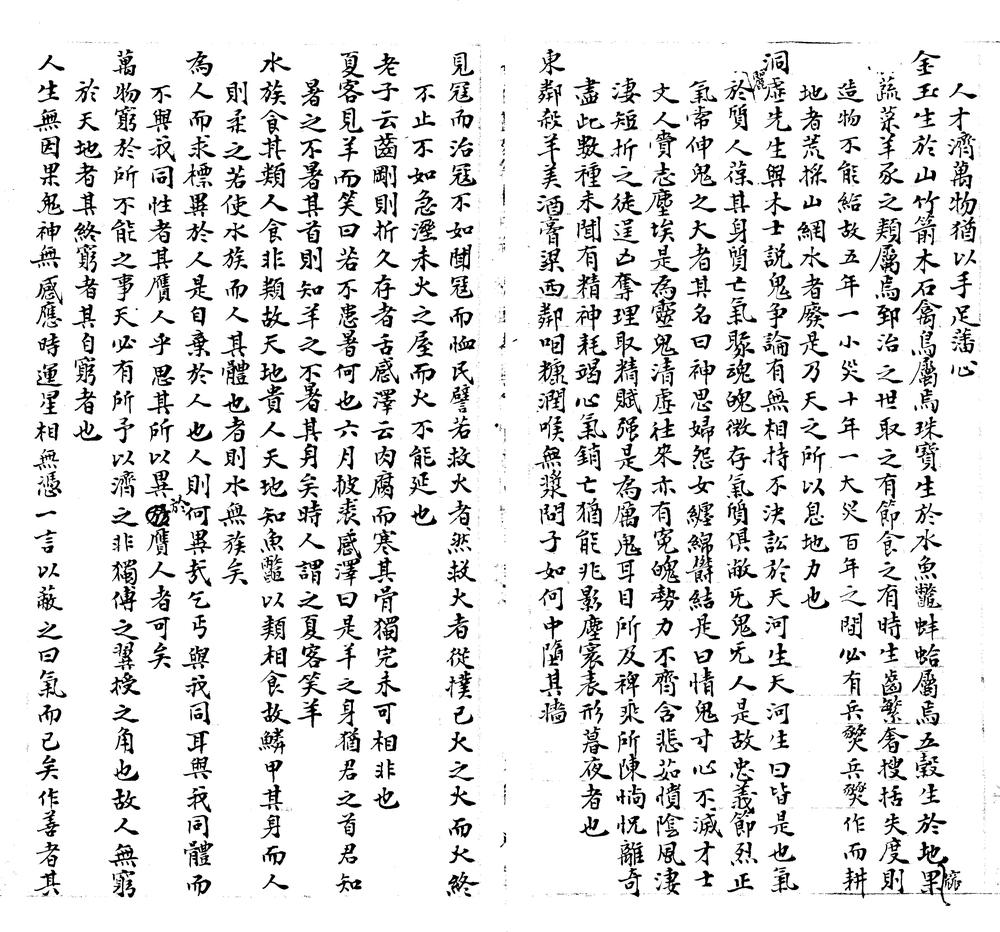 人才濟萬物猶以手足藩心
金玉生於山竹箭木石禽鳥屬焉珠寶生於水魚鼈蚌蛤屬焉五穀生於地果蓏
蔬菜羊豕之類屬焉郅治之世取之有節食之有時生齒繁奢搜括失度則
造物不能給故五年一小災十年一大災百年之間必有兵燹兵燹作而耕
地者荒採山網水者廢是乃天之所以息地力也
洞虛先生與未士説鬼爭論有無相持不決訟於天河生天河生曰皆是也氣
於質人葆其身質亡氣聚魂魄微存氣質俱敝旡鬼旡人是故忠義節烈正
氣常伸鬼之大者其名曰神思婦怨女纏綿鬱結是曰情鬼寸心不滅才士
文人賫志塵埃是為靈鬼清虛往來亦有寃魄勢力不齊含悲茹憤陰風淒
淒短折之徒逞凶奪理取精賦强是為厲鬼耳目所及稗乘所陳惝怳離奇
盡此數種未聞有精神耗竭心氣銷亡猶能兆影塵寰表形暮夜者也
東鄰殺羊美酒膏粱西鄰咽糠潤喉無漿問子如何中隔其墻
見寇而治寇不如聞寇而恤民譬若救火者然救火者從撲已火之火而火終
不止不如急溼未火之屋而火不能延也
老子云齒剛則折久存者舌感澤云肉腐而寒其骨獨完未可相非也
夏客見羊而笑曰若不患暑何也六月披裘感澤曰是羊之身猶君之首君知
暑之不暑其首則知羊之不暑其身矣時人謂之夏客笑羊
水族食其類人食非類故天地貴人天地知魚鼈以類相食故鱗甲其身而人
則柔之若使水族而人其體也者則水無族矣
為人而求標異於人是自棄於人也人則何異哉乞丐與我同耳與我同體而
不與我同性者其贋人乎思其所以異於贋人者可矣
萬物窮於所不能之事天必有所予以濟之非獨傅之翼授之角也故人無窮
於天地者其終窮者其自窮者也
人生無因果鬼神無感應時運星相無憑一言以蔽之曰氣而已矣作善者其